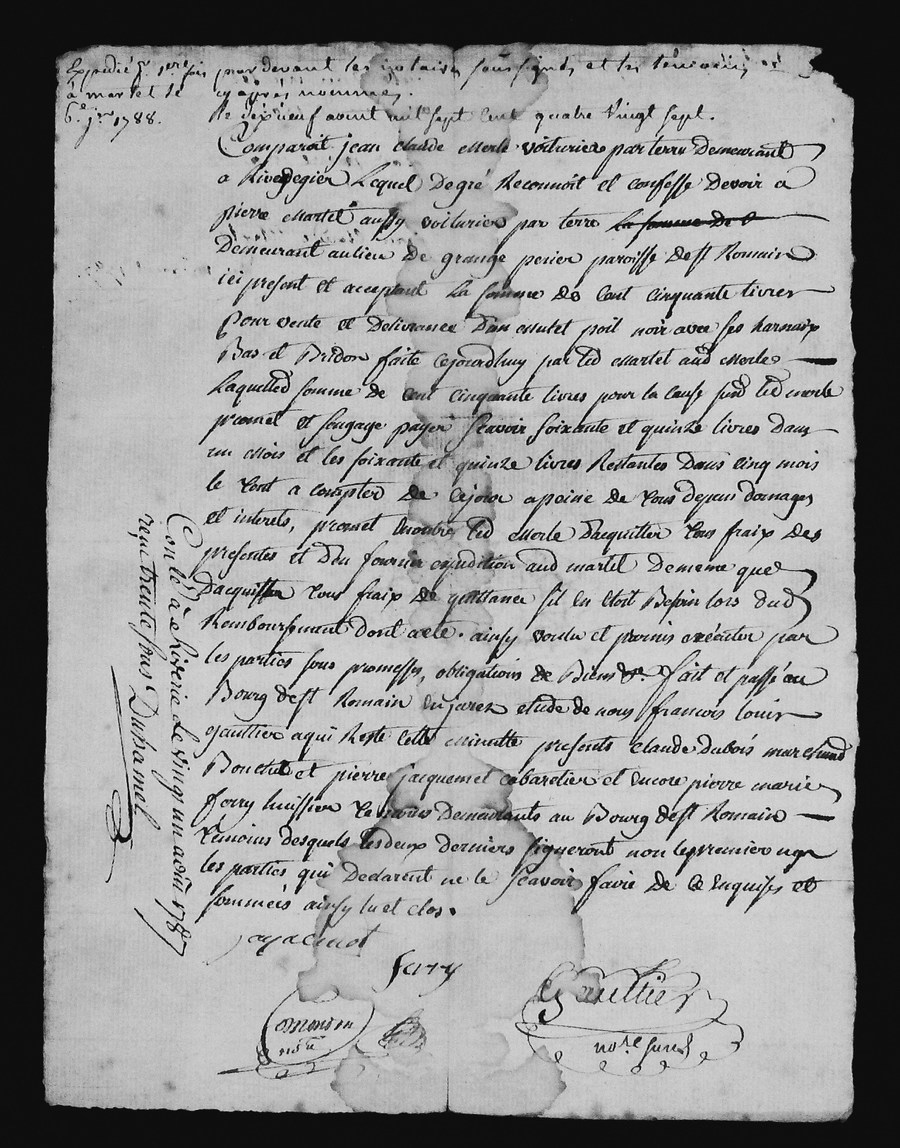 Expedié pr 1ere fois
à martet le
6e jer 1788.
par devant les notaires soussignés et les témoins
cyaprès nommés.
Le dixneuf aoust mil sept cent quatre vingt sept.
Comparoit jean claude Merle voiturier par terre Demeurant
a Rivedegier Lequel Degré Reconnoit et confesse Devoir a
pierre Martet aussy voiturier par terre la somme de
Demeurant aulieu de grange perier paroisse de st Romain
ici present et acceptant La somme de Cent Cinquante livres
pour vente et Délivrance D'un Mulet poil noir avec ses harnaix
Bas et Bridon faite cejourdhuy par led Martet aud Merle
Laquelled somme de Cent Cinquante livres pour la cause susd led merle
promet et sengage payer scavoir soixante et quinze livres Dans
un Mois et les soixante et quinze livres Restantes Dans Cinq mois
le tout a compter de cejour a peine de tous depens domages
et interets, promet led Merle D'acquitter tous fraix des
presentes et D'en fournir expedition aud martet De meme que
D'acquitter tous fraix de quittance s'il en etoit Besoin lors dud
Remboursement dont acte. ainsy voulu et promis exécuter par
les parties sous promesses, obligations de Biens &e fait et passé au
Bourg de st Romain en jarez etude de nous francois louis
gaultier a qui Reste Cette Minutte presents claude Dubois marchand
Boucher et pierre jacquemet cabaretier et encore pierre marie
ferry huissier temoins Demeurants au Bourg de st Romain
témoins desquels les deux derniers signeront non le premier ny
les parties qui Déclarent ne le scavoir faire de ce Enquises et
sommées ainsy lu et clos.
ferry
Gaultier
nore
Conlé à Riverie Le vingt un août 1787
reçu trente sous Duhamel